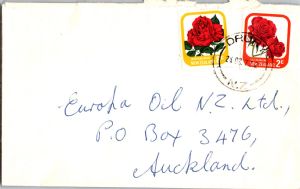 NEW ZEALAND
NEW ZEALAND 2c
N.Z.
Europa Oil N.Z. Ltd.,
P.O Box 3476,
Auckland.